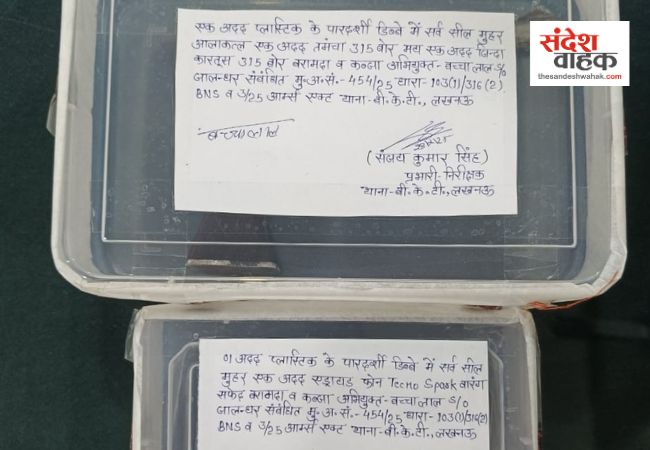 एक अदद प्लास्टिक के पारदर्शी डिब्बे में सर्व सील मुहर
आलाकत्ल एक अदद तमंचा 315 बोर मय एक अदद जिन्दा
कारतूस 315 बोर बरामदा व कब्जा अभियुक्त- बच्चा लाल S/O
जालन्धर संबंधित मु०अ०सं०- 454/25 धारा- 103(1)/316(2)
BNS व 3/25 आर्म्स एक्ट थाना- बी.के.टी., लखनऊ
बच्चालाल
(संजय कुमार सिंह)
प्रभारी निरीक्षक
थाना- बी.के.टी., लखनऊ
संदेश
वाहक
thesandeshwahak.com
01 अदद प्लास्टिक के पारदर्शी डिब्बे में सर्व सील
मुहर एक अदद एड्रायड फोन Tecno Spark बारंग
सफेद बरामदा व कब्जा अभियुक्त- बच्चा लाल S/O
जालन्धर संबंधित मु०अ०सं०- 454/25 धारा- 103(1)/316(2)
BNS व 3/25 आर्म्स एक्ट थाना- बी.के.टी., लखनऊ